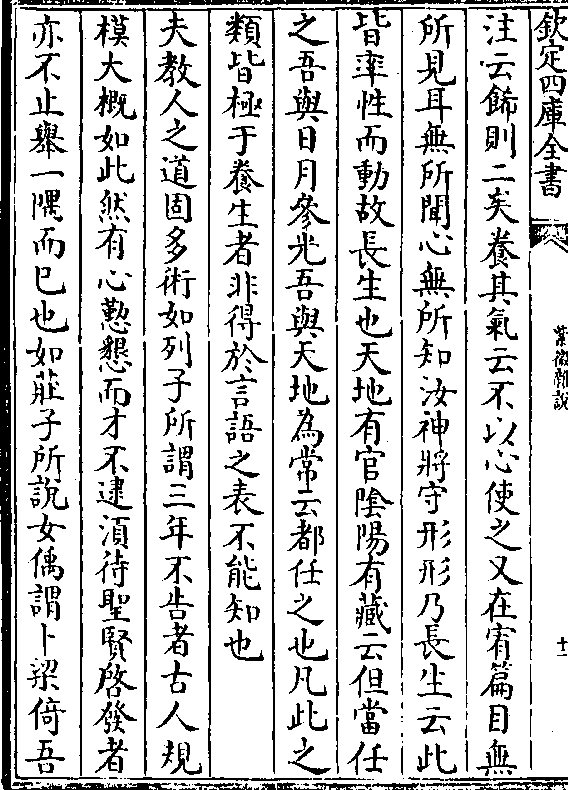 欽定四庫全書
紫微雜說
十二
注云飾則二矣養其氣云不以心使之又在宥篇目無
所見耳無所聞心無所知汝神將守形形乃長生云此
皆率性而動故長生也天地有官陰陽有藏云但當任
之吾與日月參光吾與天地為常云都任之也凡此之
類皆極于養生者非得於言語之表不能知也
夫教人之道固多術如列子所謂三年不告者古人規
模大概如此然有心懃懇而才不逮湏待聖賢啓發者
亦不止舉一隅而已也如莊子所說女偊謂卜梁倚吾